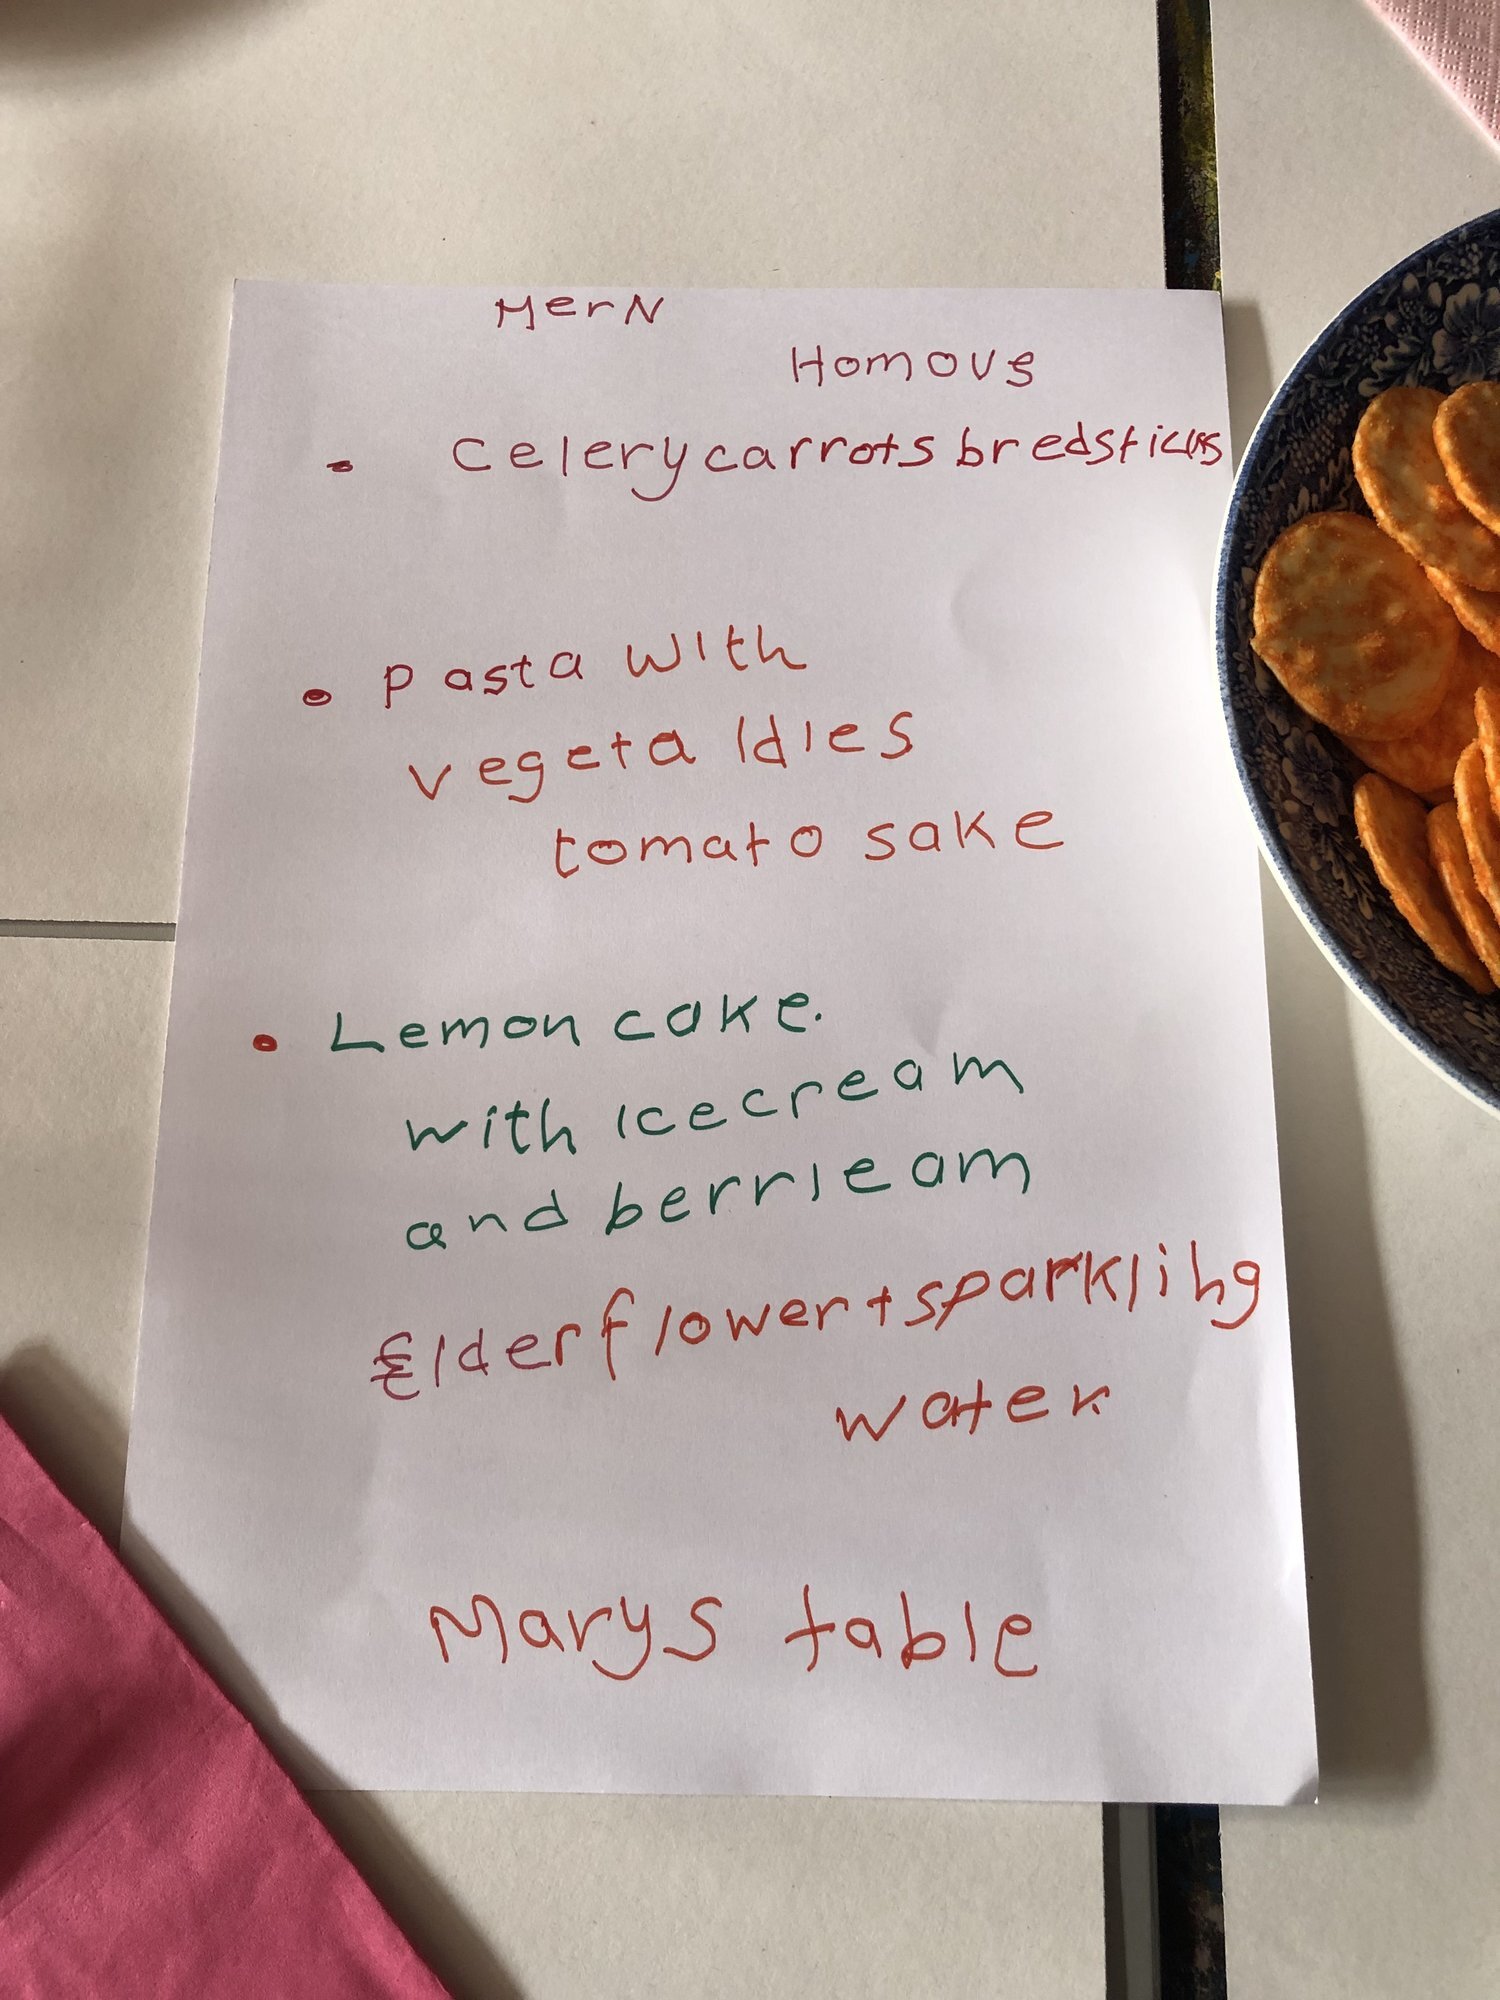 MerN
Homous
celery carrots bredsticks
Pasta with
vegeta ldies
tomato sake
Lemon cake.
with icecream
and berrieam
Elderflower + sparkling
water
Marys table